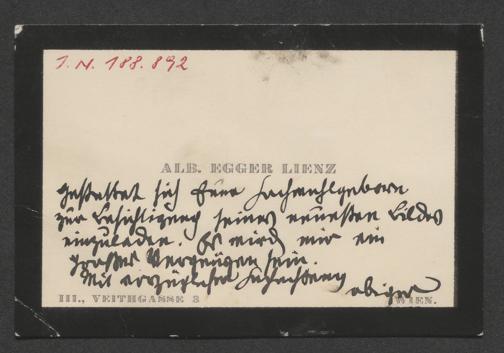 I.N. 188.892
ALB. EGGER LIENZ
gestattet sich Euer Hochwohlgeborn
zur Besichtigung seines neuesten Bildes
einzuladen. Es wird mir ein
großes Vergnügen sein.
Mit vorzüglicher Hochachtung
obiger
III., VEITHGASSE 3 WIEN.